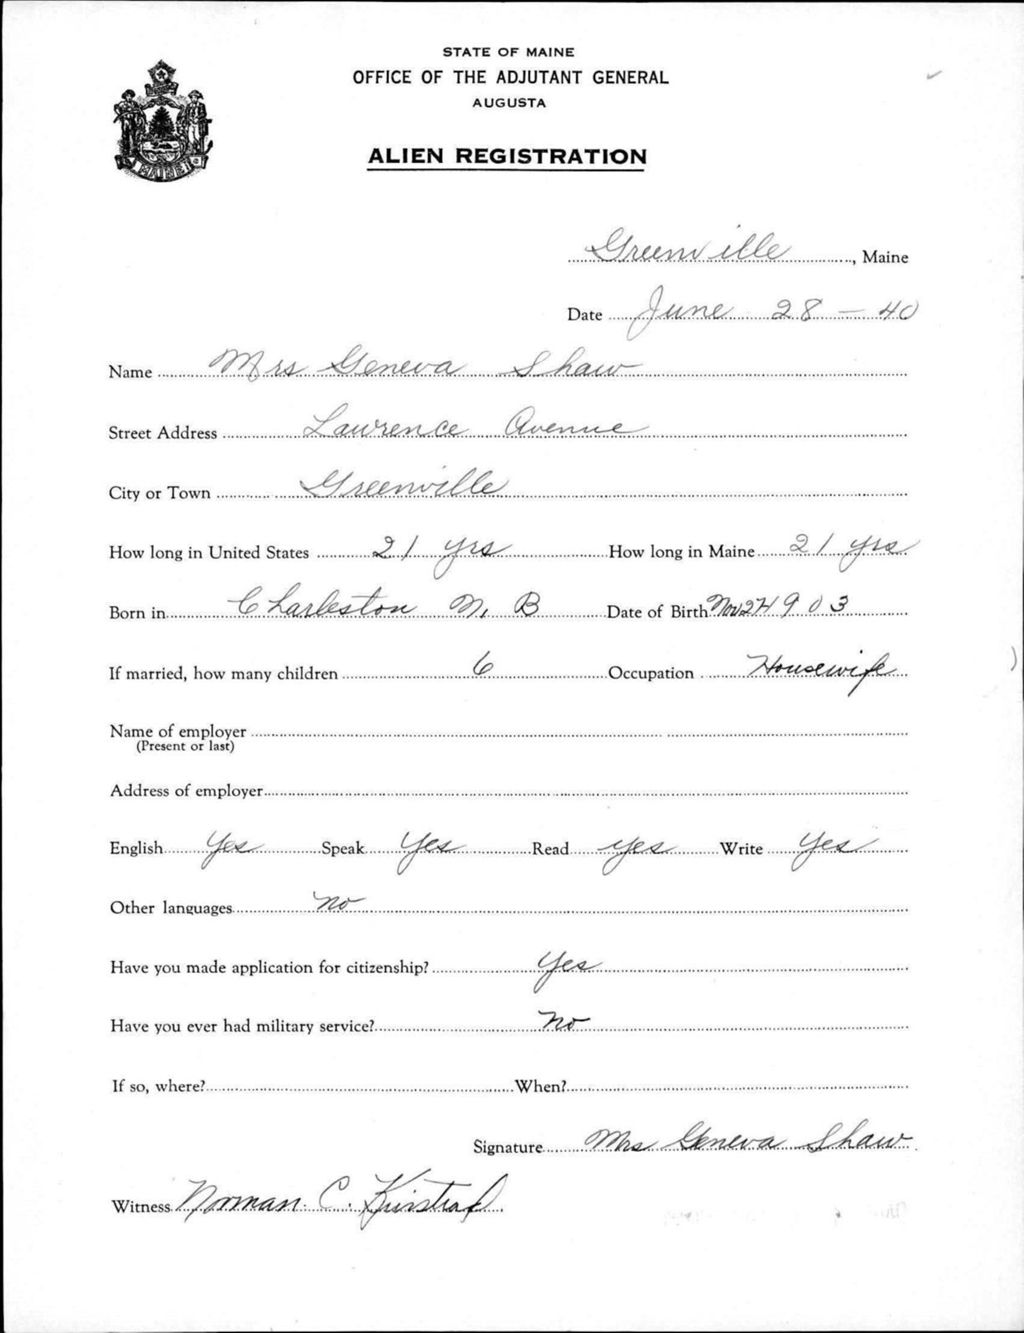 STATE OF MAINE
OFFICE OF THE ADJUTANT GENERAL
AUGUSTA
ALIEN REGISTRATION
MAINE
Greenville, Maine
Date June 28 - 40
Name Mrs Geneva Shaw
Street Address Lawrence Avenue
City or Town Greenville
How long in United States 21 yrs How long in Maine 21 yrs
Born in Charleston N, B Date of Birth Nov 24 903
If married, how many children 6 Occupation Housewife
Name of employer
(Present or last)
Address of employer
English Yes Speak Yes Read yes Write Yes
Other languages no
Have you made application for citizenship? Yes
Have you ever had military service? no
If so, where? When?
Signature Mrs Geneva Shaw
Witness Norman C.